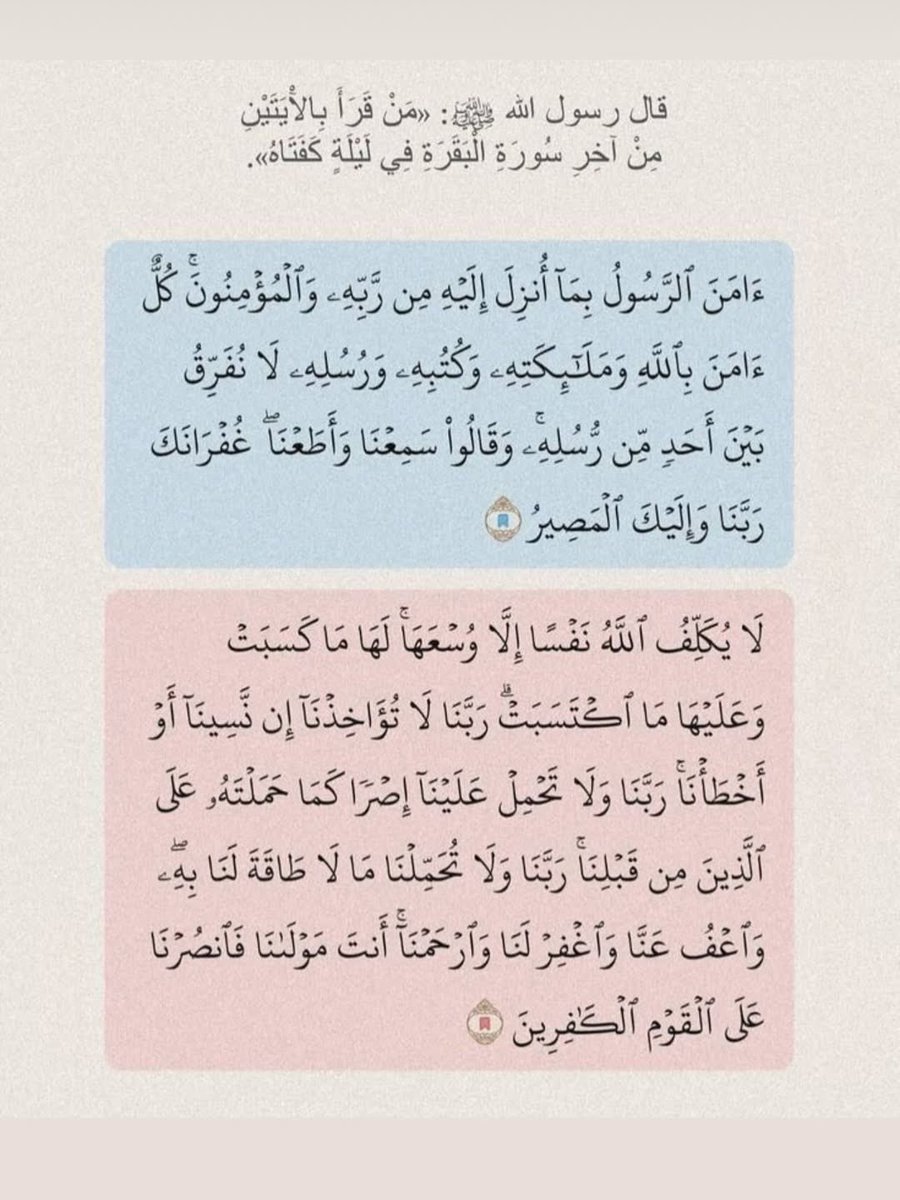 قال رسول الله ﷺ: «مَنْ قَرَأَ بِالْأيَتَيْنِ
مِنْ آخِرِ سُورَةِ الْبَقَرَةِ فِي لَيْلَةٍ كَفَتَاهُ».
ءَامَنَ ٱلرَّسُولُ بِمَآ أُنزِلَ إِلَيْهِ مِن رَّبِّهِۦ وَٱلْمُؤْمِنُونَۚ كُلٌّ
ءَامَنَ بِٱللَّهِ وَمَلَٰٓئِكَتِهِۦ وَكُتُبِهِۦ وَرُسُلِهِۦ لَا نُفَرِّقُ
بَيْنَ أَحَدٍ مِّن رُّسُلِهِۦۚ وَقَالُوا۟ سَمِعْنَا وَأَطَعْنَاۖ غُفْرَانَكَ
رَبَّنَا وَإِلَيْكَ ٱلْمَصِيرُ
لَا يُكَلِّفُ ٱللَّهُ نَفْسًا إِلَّا وُسْعَهَاۚ لَهَا مَا كَسَبَتْ
وَعَلَيْهَا مَا ٱكْتَسَبَتْۗ رَبَّنَا لَا تُؤَاخِذْنَآ إِن نَّسِينَآ أَوْ
أَخْطَأْنَاۚ رَبَّنَا وَلَا تَحْمِلْ عَلَيْنَآ إِصْرًا كَمَا حَمَلْتَهُۥ عَلَى
ٱلَّذِينَ مِن قَبْلِنَاۚ رَبَّنَا وَلَا تُحَمِّلْنَا مَا لَا طَاقَةَ لَنَا بِهِۦۖ
وَٱعْفُ عَنَّا وَٱغْفِرْ لَنَا وَٱرْحَمْنَآۚ أَنتَ مَوْلَىٰنَا فَٱنصُرْنَا
عَلَى ٱلْقَوْمِ ٱلْكَٰفِرِينَ